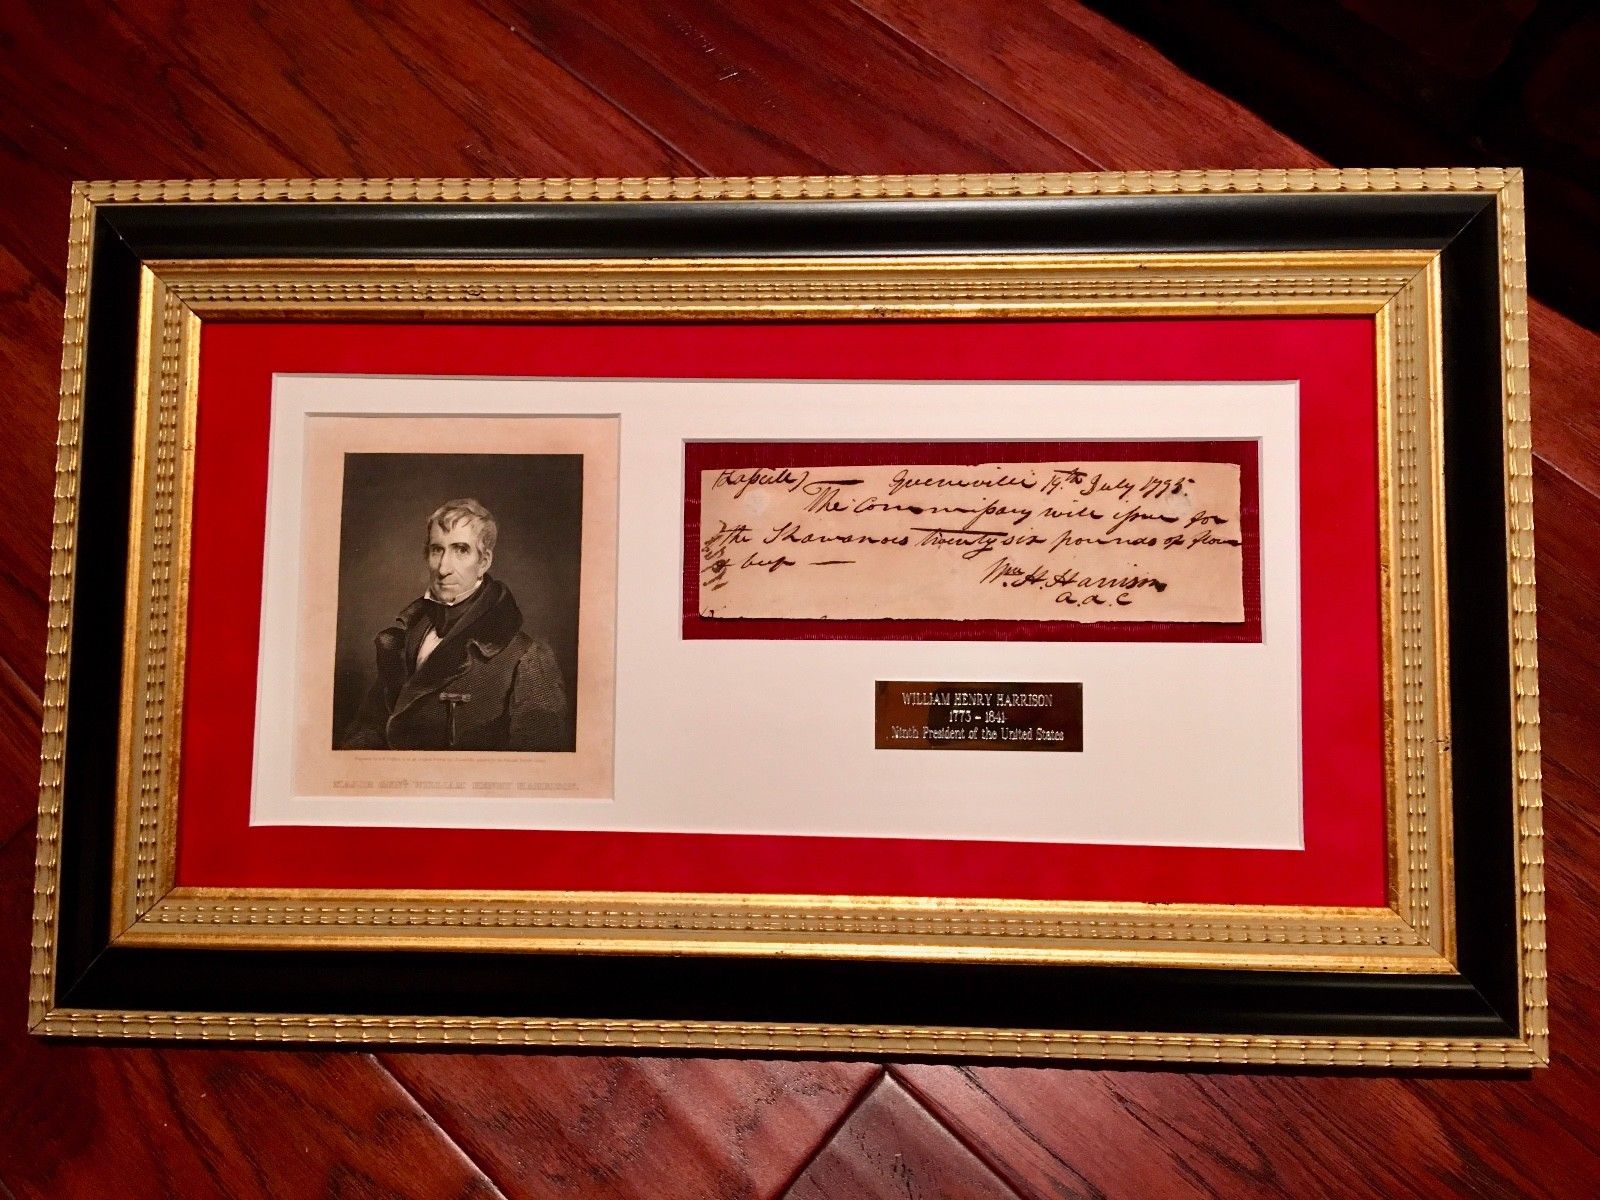 MAJOR GENL. WILLIAM HENRY HARRISON.
(Lasselle) Greeneville 19th July 1795.
The Commissary will issue for
the Shawanoes twenty six pounds of flour
& beef —
Wm. H. Harrison
a.a.c
WILLIAM HENRY HARRISON
1773 - 1841
Ninth President of the United States